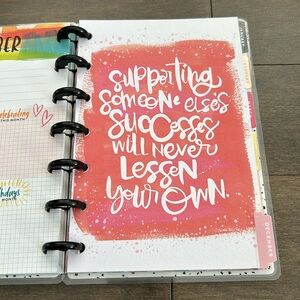 BER
celebrating
THIS MONTH
hdays
MONTH
supporting
someone else's
successes
will never
lessen
your own.
DECEMBER